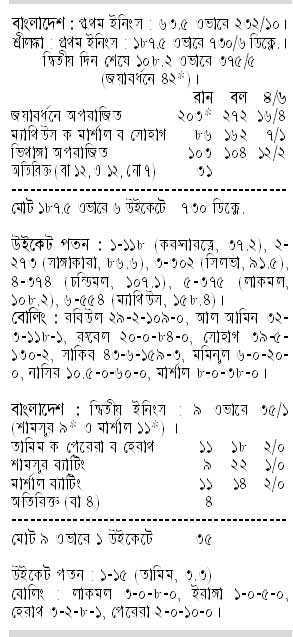 বাংলাদেশ : প্রথম ইনিংস : ৬৩.৫ ওভারে ২৩২/১০।
শ্রীলঙ্কা : প্রথম ইনিংস : ১৮৭.৫ ওভারে ৭৩০/৬ ডিক্লে.।
দ্বিতীয় দিন শেষে ১০৮.২ ওভারে ৩৭৫/৫
(জয়াবর্ধনে ৪২*)।
রান বল ৪/৬
জয়াবর্ধনে অপরাজিত ২০৩* ২৭২ ১৬/৪
ম্যাথিউস ক মার্শাল ব সোহাগ ৮৬ ১৬২ ৭/১
ভিথাঙ্গা অপরাজিত ১০৩ ১০৪ ১২/২
অতিরিক্ত (বা ১২, এ ১২, নো ৭) ৩১
মোট ১৮৭.৫ ওভারে ৬ উইকেটে ৭৩০ ডিক্লে.
উইকেট পতন : ১-১১৮ (করুণারত্নে, ৩৭.২), ২-
২৭৩ (সাঙ্গাকারা, ৮৬.৬), ৩-৩০২ (সিলভা, ৯১.৫),
৪-৩৭৪ (চন্ডিমল, ১০৭.১), ৫-৩৭৫ (লাকমল,
১০৮.২), ৬-৫৫৪ (ম্যাথিউস, ১৫৮.৪)।
বোলিং : রবিউল ২৯-২-১০৯-০, আল আমিন ৩২-
৩-১১৮-১, রুবেল ২০-০-৮৪-০, সোহাগ ৩৯-৫-
১৩০-২, সাকিব ৪৩-৬-১৫৯-৩, মমিনুল ৬-০-২০-
০, নাসির ১০.৫-০-৬০-০, মার্শাল ৮-০-৩৮-০।
বাংলাদেশ : দ্বিতীয় ইনিংস : ৯ ওভারে ৩৫/১
(শামসুর ৯* ও মার্শাল ১১*) ।
তামিম ক পেরেরা ব হেরাথ ১১ ১৮ ২/০
শামসুর ব্যাটিং ৯ ২২ ১/০
মার্শাল ব্যাটিং ১১ ১৪ ২/০
অতিরিক্ত (বা ৪) ৪
মোট ৯ ওভারে ১ উইকেটে ৩৫
উইকেট পতন : ১-১৫ (তামিম, ৩.৩)
বোলিং : লাকমল ৩-০-৮-০, ইরাঙ্গা ১-০-৫-০,
হেরাথ ৩-২-৮-১, পেরেরা ২-০-১০-০।